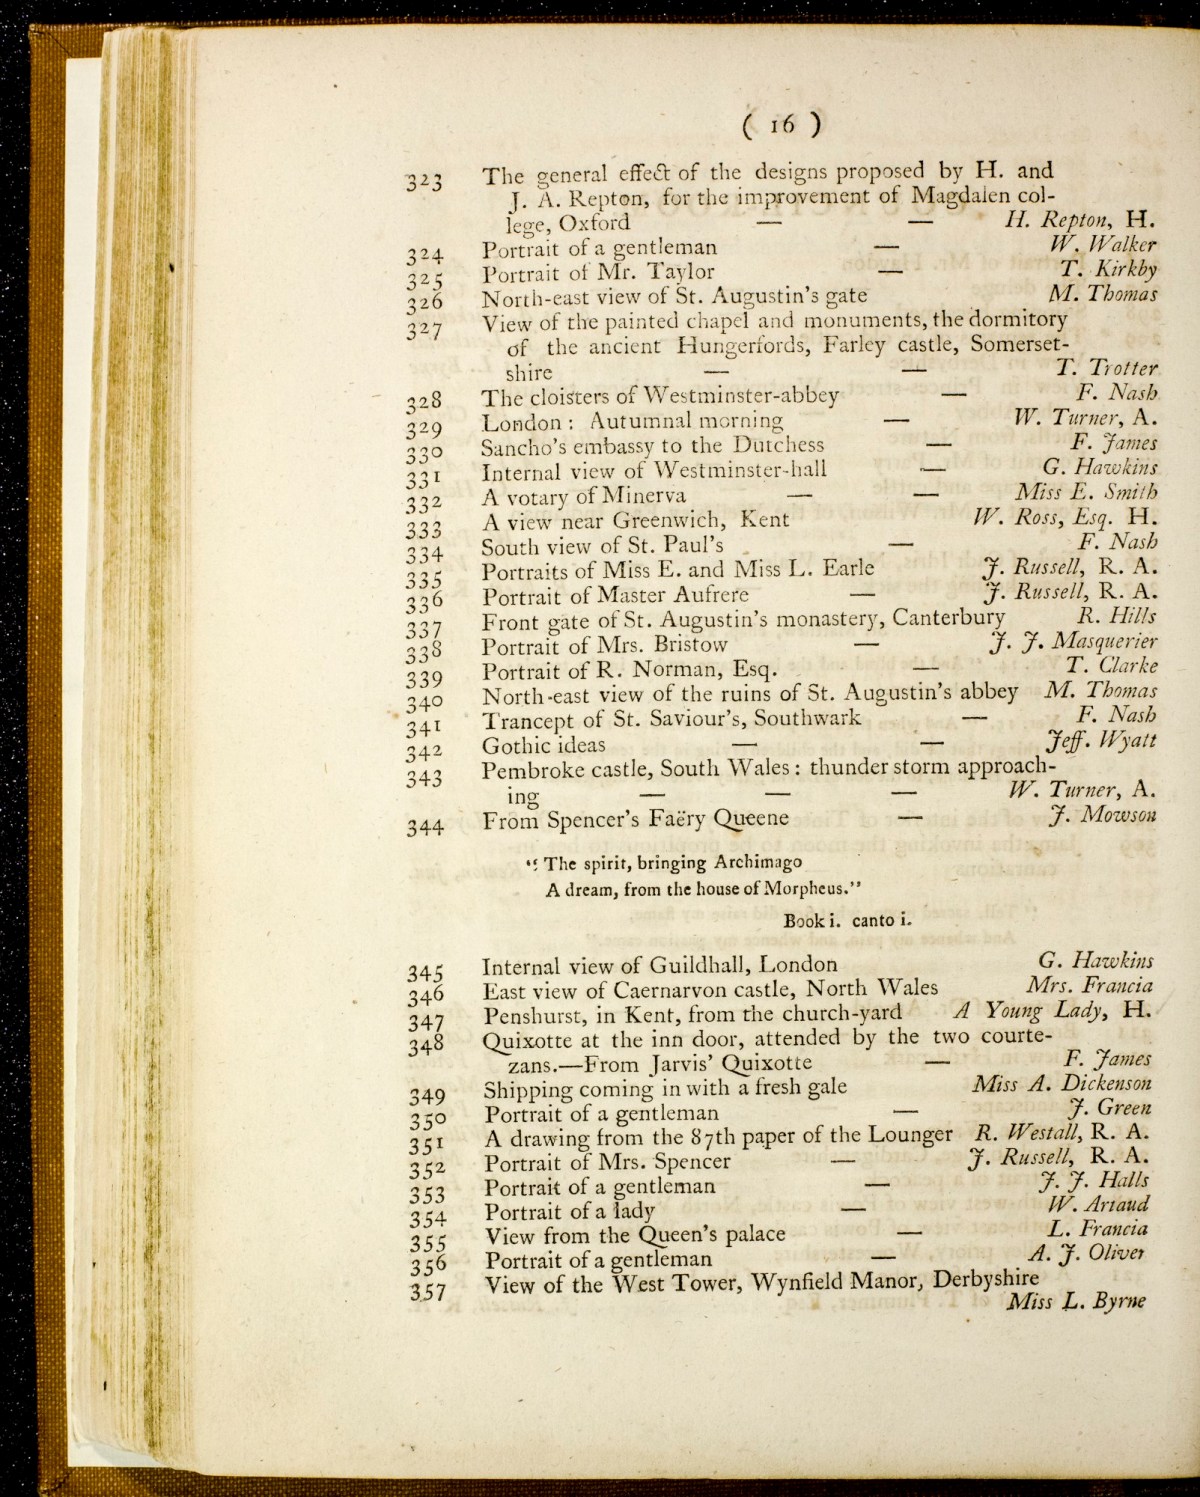 ( 16 )
323 The general effect of the designs proposed by H. and
J. A. Repton, for the improvement of Magdalen col-
lege, Oxford — — H. Repton, H.
324 Portrait of a gentleman — W. Walker
325 Portrait of Mr. Taylor — T. Kirkby
326 North-east view of St. Augustin's gate M. Thomas
327 View of the painted chapel and monuments, the dormitory
of the ancient Hungerfords, Farley castle, Somerset-
shire — — T. Trotter
328 The cloisters of Westminster-abbey — F. Nash
329 London : Autumnal morning — W. Turner, A.
330 Sancho's embassy to the Dutchess — F. James
331 Internal view of Westminster-hall — G. Hawkins
332 A votary of Minerva — — Miss E. Smith
333 A view near Greenwich, Kent W. Ross, Esq. H.
334 South view of St. Paul's — F. Nash
335 Portraits of Miss E. and Miss L. Earle J. Russell, R. A.
336 Portrait of Master Aufrere — J. Russell, R. A.
337 Front gate of St. Augustin's monastery, Canterbury R. Hills
338 Portrait of Mrs. Bristow — J. J. Masquerier
339 Portrait of R. Norman, Esq. — T. Clarke
340 North-east view of the ruins of St. Augustin's abbey M. Thomas
341 Trancept of St. Saviour's, Southwark — F. Nash
342 Gothic ideas — — Jeff. Wyatt
343 Pembroke castle, South Wales : thunder storm approach-
ing — — — W. Turner, A.
344 From Spencer's Faëry Queene — J. Mowson
“ The spirit, bringing Archimago
A dream, from the house of Morpheus.”
Book i. canto i.
345 Internal view of Guildhall, London G. Hawkins
346 East view of Caernarvon castle, North Wales Mrs. Francia
347 Penshurst, in Kent, from the church-yard A Young Lady, H.
348 Quixotte at the inn door, attended by the two courte-
zans.—From Jarvis' Quixotte — F. James
349 Shipping coming in with a fresh gale Miss A. Dickenson
350 Portrait of a gentleman — J. Green
351 A drawing from the 87th paper of the Lounger R. Westall, R. A.
352 Portrait of Mrs. Spencer — J. Russell, R. A.
353 Portrait of a gentleman — J. J. Halls
354 Portrait of a lady — W. Artaud
355 View from the Queen's palace — L. Francia
356 Portrait of a gentleman — A. J. Oliver
357 View of the West Tower, Wynfield Manor, Derbyshire
Miss L. Byrne